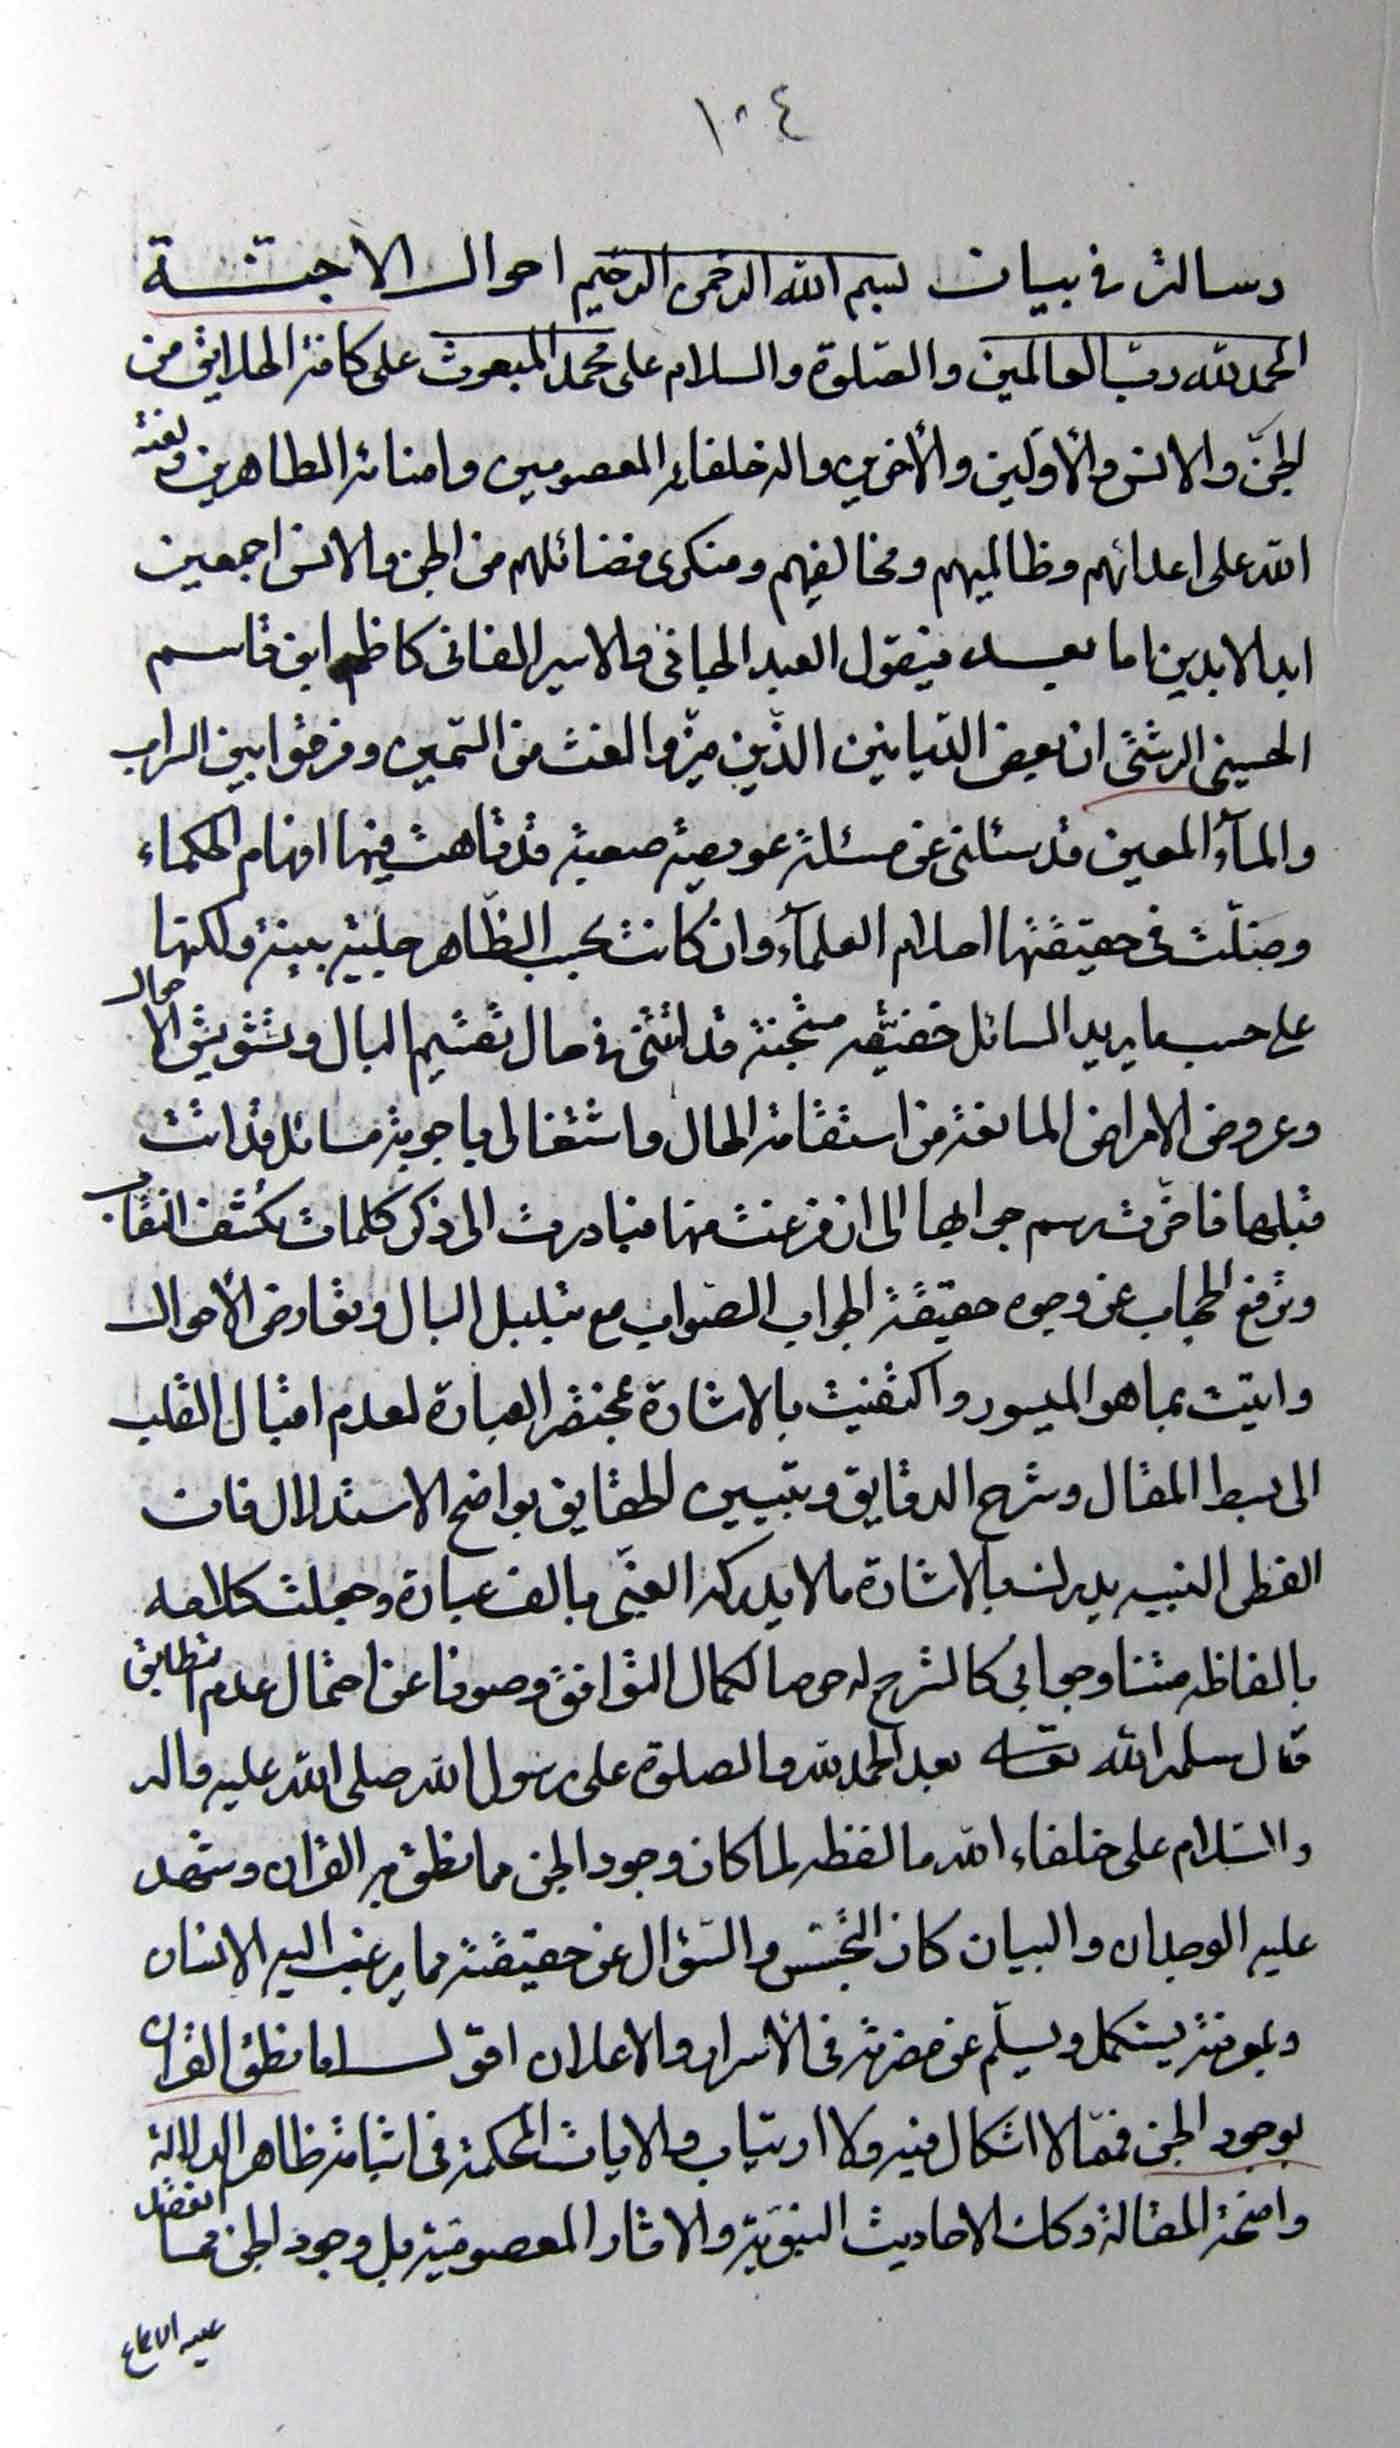 ١٠٤
رسالة في بيان بسم الله الرحمن الرحيم احوال الاجنة
الحمد لله رب العالمين والصلوة والسلام على محمد المبعوث على كافة الخلايق من
الجنّ والانس والأولين والأخرين واله خلفائه المعصومين وامنائه الطاهرين ولعنة
الله على اعدائهم وظالميهم ومخالفيهم ومنكري فضائلهم من الجن والانس اجمعين
ابد الابدين اما بعد فيقول العبد الجاني والاسير الفاني كاظم ابن قاسم
الحسيني الرشتي ان بعض الديانين الذين ميزوا الغث من السمين وفرقوا بين السراب
والمآء المعين قد سئلني عن مسئلة عويصة صعبة قد تاهت فيها افهام الحكماء
وضلّت في حقيقتها احلام العلمآء وان كانت بحسب الظاهر جلية بينة ولكنها
على حسب ما يريد السائل خفيّة قد اتتني في حال تقسيم البال وتشويش الاحوال
وعروض الامراض المانعة من استقامة الحال واشتغالي باجوبة مسائل قد اتت
قبلها فاخّرت رسم جوابها الى ان فرغت منها فبادرت الى ذكر كلمات تكشف النقاب
وترفع الحجاب عن وجوه حقيقة الجواب الصواب مع تبلبل البال وتعارض الأحوال
واتيت بما هو الميسور واكتفيت بالاشارة بمختصر العبارة لعدم اقبال القلب
الى بسط المقال وشرح الدقايق وتبيين الحقايق بواضح الاستدلال فان
الفطن النبيه يدرك بالاشارة مالا يدركه الغبي بالف عبارة وجعلت كلامه
بالفاظه متنا وجوابي كالشرح له حرصا لكمال التوافق وصونا عن احتمال عدم التطابق
قال سلمه الله تعالى بعد الحمد لله والصلوة على رسول الله صلى الله عليه واله
والسلام على خلفاء الله ما لفظه لما كان وجود الجن مما نطق به القران وشهد
عليه الوجدان والبيان كان التجسّس والسّؤال عن حقيقته مما يرغب اليه الانسان
وبمعرفته يستكمل ويسلّم عن مضرته في الأسرار والاعلان اقول اما نطق القران
بوجود الجن فممّا لا اشكال فيه ولا ارتياب والايات المحكمة في اثباته ظاهر الدلالة
واضحة المقالة وكذا الاحاديث النبويّة والاثار المعصوميّة بل وجود الجن مما انعقد
عليه الاجماع